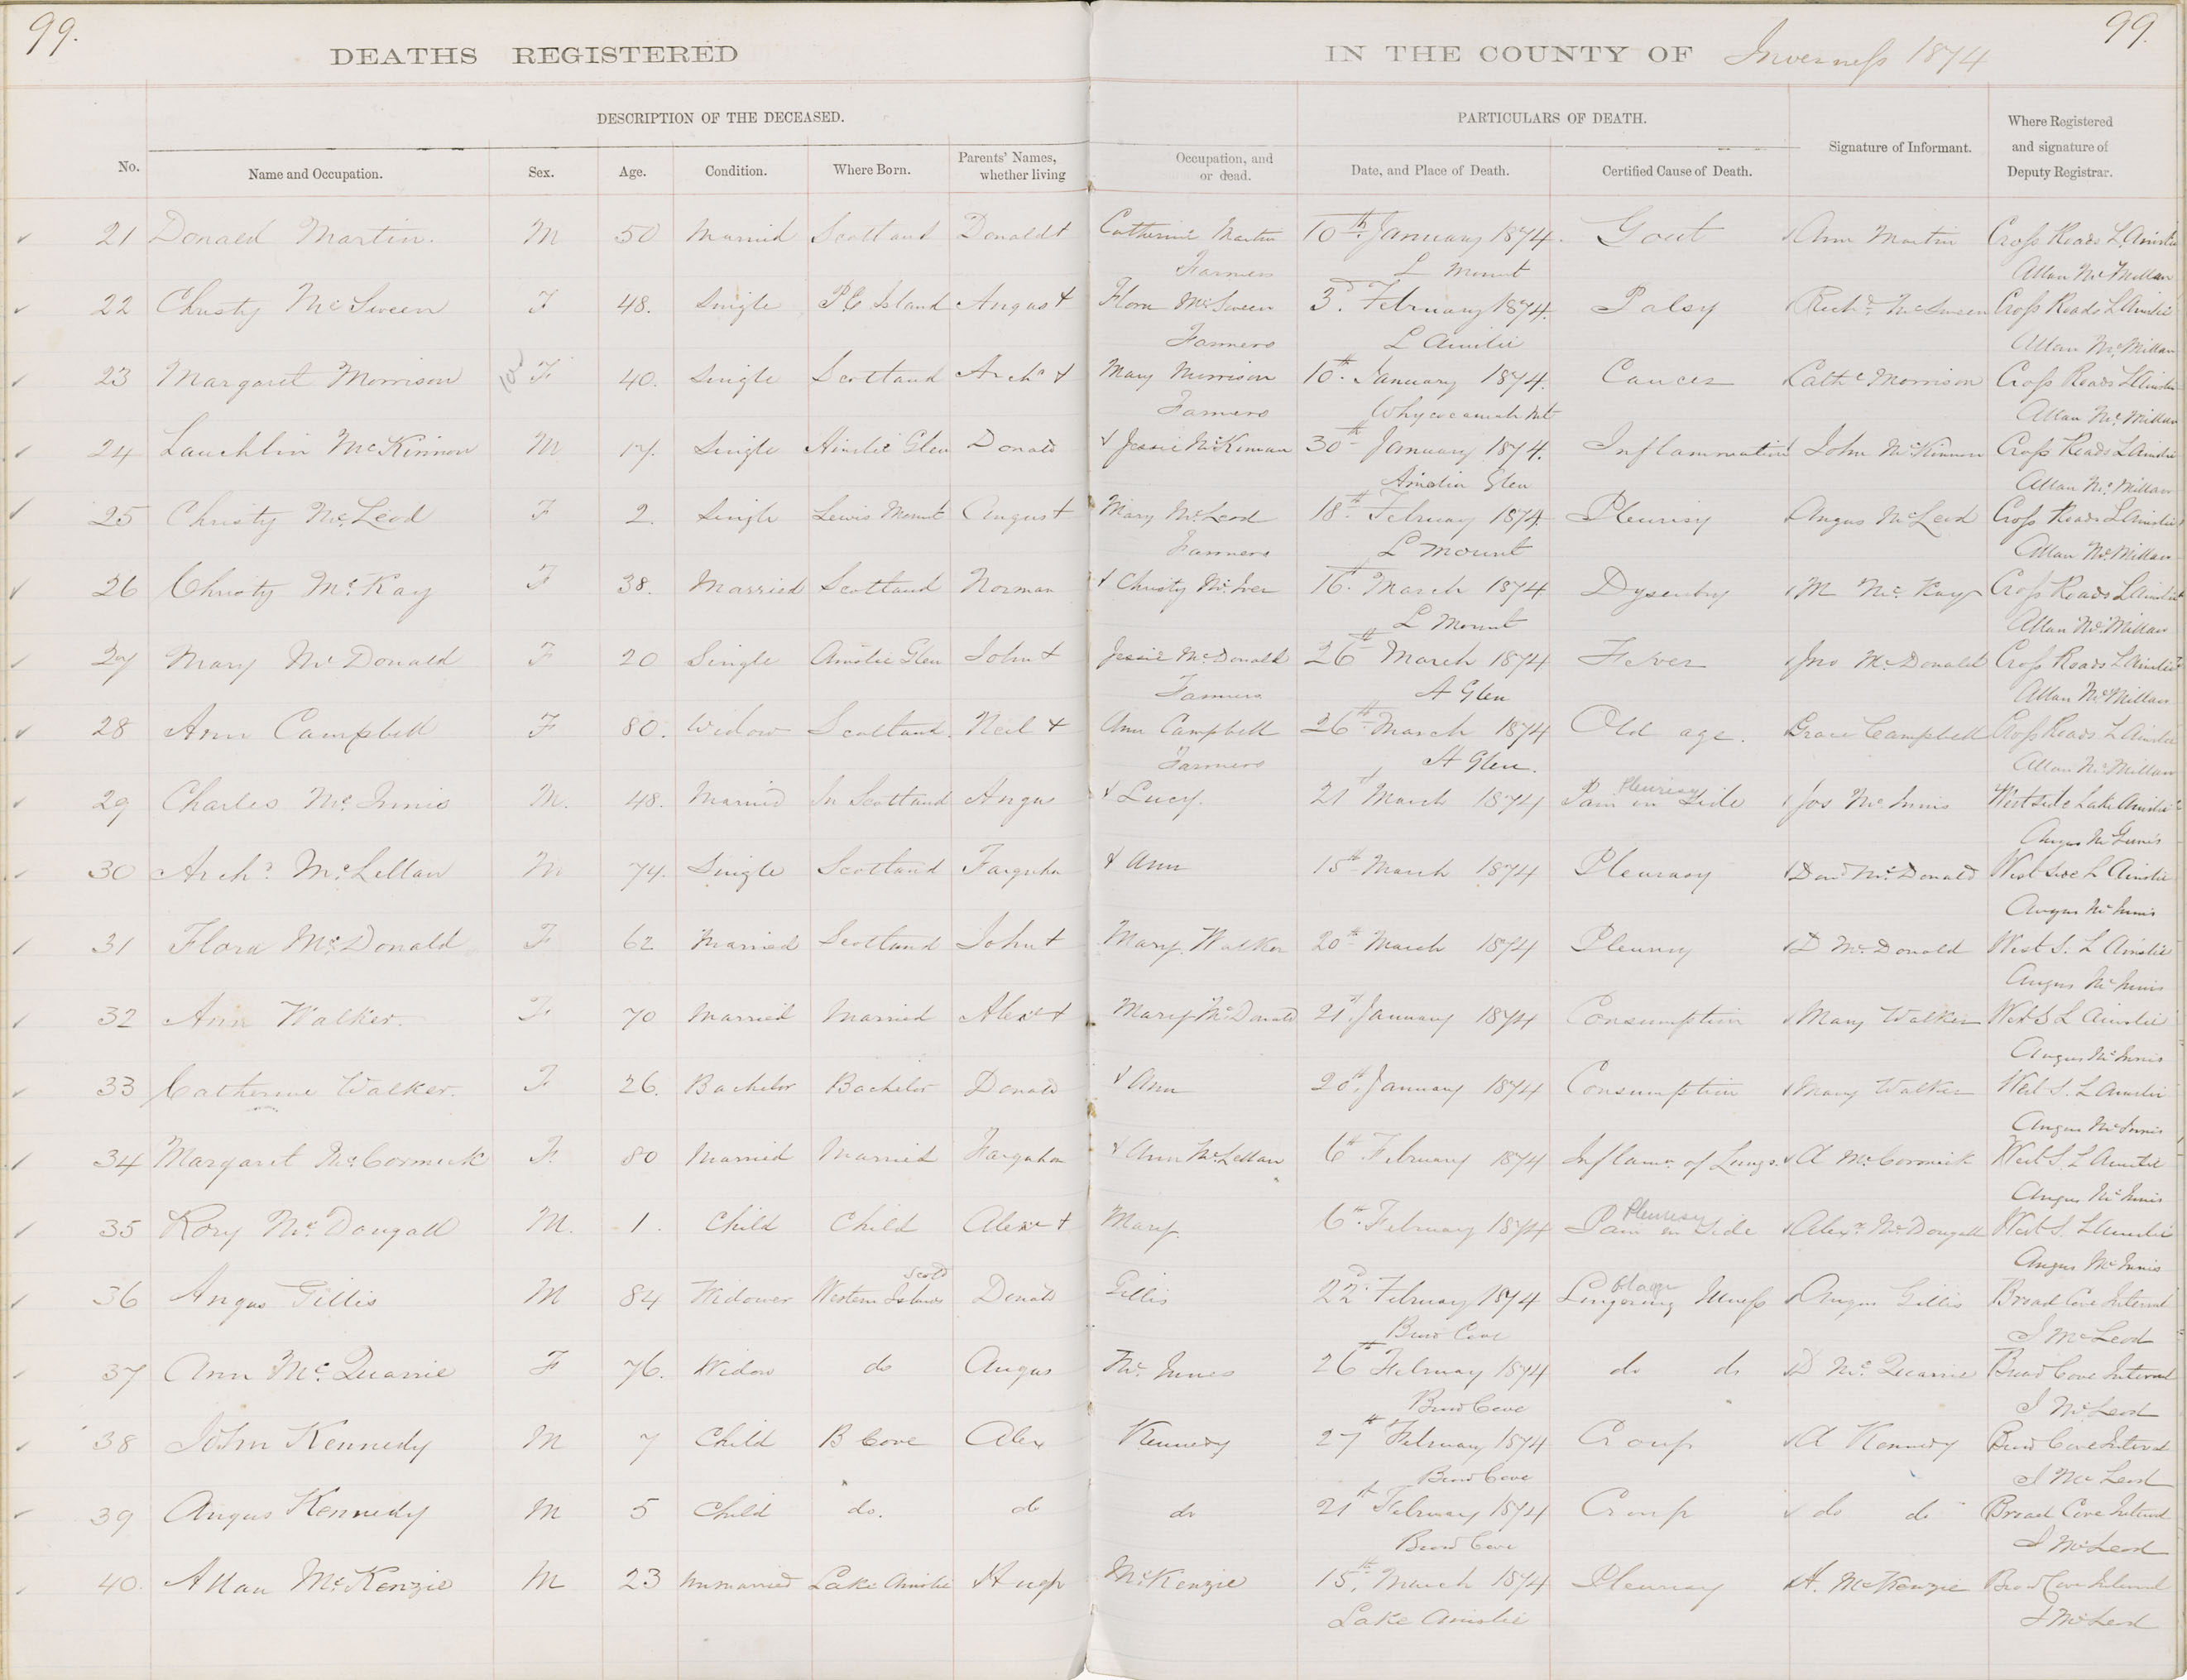 99. 99.
DEATHS REGISTERED IN THE COUNTY OF Inverness 1874
DESCRIPTION OF THE DECEASED. PARTICULARS OF DEATH.
No. Name and Occupation. Sex. Age. Condition. Where Born. Parents' Names, whether living Occupation, and or dead. Date, and Place of Death. Certified Cause of Death. Signature of Informant. Where Registered and signature of Deputy Registrar.
21 Donald Martin. M 50 Married Scotland Donald + Catherine Martin 10th January 1874. Gout Ann Martin Cross Roads L. Ainslie
Farmers L Mount Allan McMillan
22 Christy McSween F 48. Single PE Island Angus + Flora McSween 3d. February 1874. Palsy Richd. McSween Cross Roads L Ainslie
Farmers L Ainslie Allan McMillan
23 Margaret Morrison F 40. Single Scotland Archd + Mary Morrison 10th. January 1874. Cancer Cathe Morrison Cross Roads L Ainslie
Farmers Whycocomah Mt Allan McMillan
24 Lauchlin McKinnon M 17. Single Ainslie Glen Donald + Jessie McKinnon 30th January 1874. Inflammation John McKinnon Cross Roads L Ainslie
Ainslie Glen Allan McMillan
25 Christy McLeod F 2. Single Lewis Mount Angus + Mary McLeod 18th. February 1874 Pleurisy Angus McLeod Cross Roads L Ainslie
Farmers L Mount Allan McMillan
26 Christy McKay F 38. Married Scotland Norman + Christy McIver 16th. March 1874 Dysentry M McKay Cross Roads L Ainslie
L Mount Allan McMillan
27 Mary McDonald F 20 Single Ainslie Glen John + Jessie McDonald 26th March 1874 Fever Jno McDonald Cross Roads L Ainslie
Farmers A Glen Allan McMillan
28 Ann Campbell F 80. Widow Scotland. Neil + Ann Campbell 26th March 1874 Old age. Grace Campbell Cross Roads L Ainslie
Farmers A Glen. Allan McMillan
Pleurisy
29 Charles McInnis M. 48. Married In Scotland Angus + Lucy. 21st March 1874 Pain in Side Jos McInnis West side Lake Ainslie
Angus McInnis
30 Archd. McLellan M 74. Single Scotland Farquhar + Ann 15th March 1874 Pleurasy Dond McDonald West side L Ainslie
Angus McInnis
31 Flora McDonald F 62 Married Scotland John + Mary Walker 20th March 1874 Pleurisy D McDonald West S. L Ainslie
Angus McInnis
32 Ann Walker. F 70 Married Married Alexr + Mary McDonald 21st January 1874 Consumption Mary Walker West S L Ainslie
Angus McInnis
33 Catherine Walker. F 26. Bachelor Bachelor Donald + Ann 20th January 1874 Consumption Mary Walker West S. L Ainslie
Angus McInnis
34 Margaret McCormick F. 80 Married Married Farquhar + Ann McLellan 6th February 1874 Inflamn. of Lungs. A McCormick West S. L Ainslie
Angus McInnis
Pleurisy
35 Rory McDougall M. 1. Child Child Alexr + Mary 6th. February 1874 Pain in Side Alexr. McDougall West S. L Ainslie
Angus McInnis
Scotd
36 Angus Gillis M 84 Widower Western Islands Donald Gillis 22d. February 1874 Lingering Illness Angus Gillis Broad Cove Interval
Broad Cove J McLeod
37 Ann McQuarrie F 76. Widow do Angus McInnes 26th February 1874 do do D McQuarrie Broad Cove Interval
Broad Cove J McLeod
38 John Kennedy M 7 Child B Cove Alex Kennedy 27th February 1874 Croup A Kennedy Broad Cove Interval
Broad Cove J McLeod
39 Angus Kennedy M 5 Child do. do do 21st February 1874 Croup do do Broad Cove Interval
Broad Cove J McLeod
40. Allan McKenzie M 23 Unmarried Lake Ainslie Hugh McKenzie 15th. March 1874 Pleurisy H. McKenzie Broad Cove Interval
Lake Ainslie J McLeod